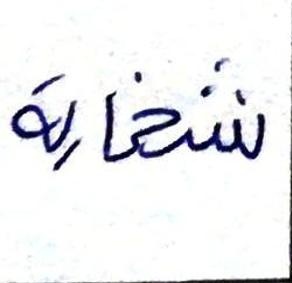 شخاية